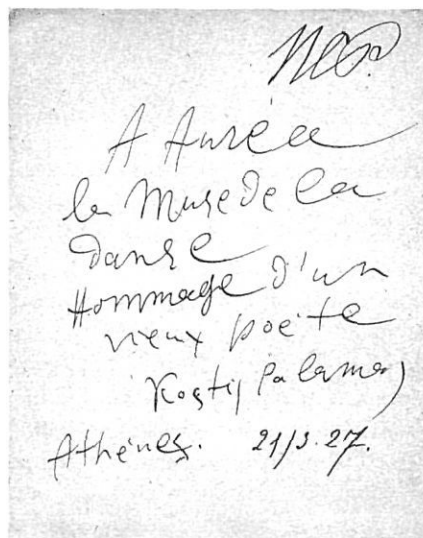 A Auréa
la Muse de la
danse
Hommage d'un
vieux poète
Kostis Palamas
Athènes. 21/3.27.